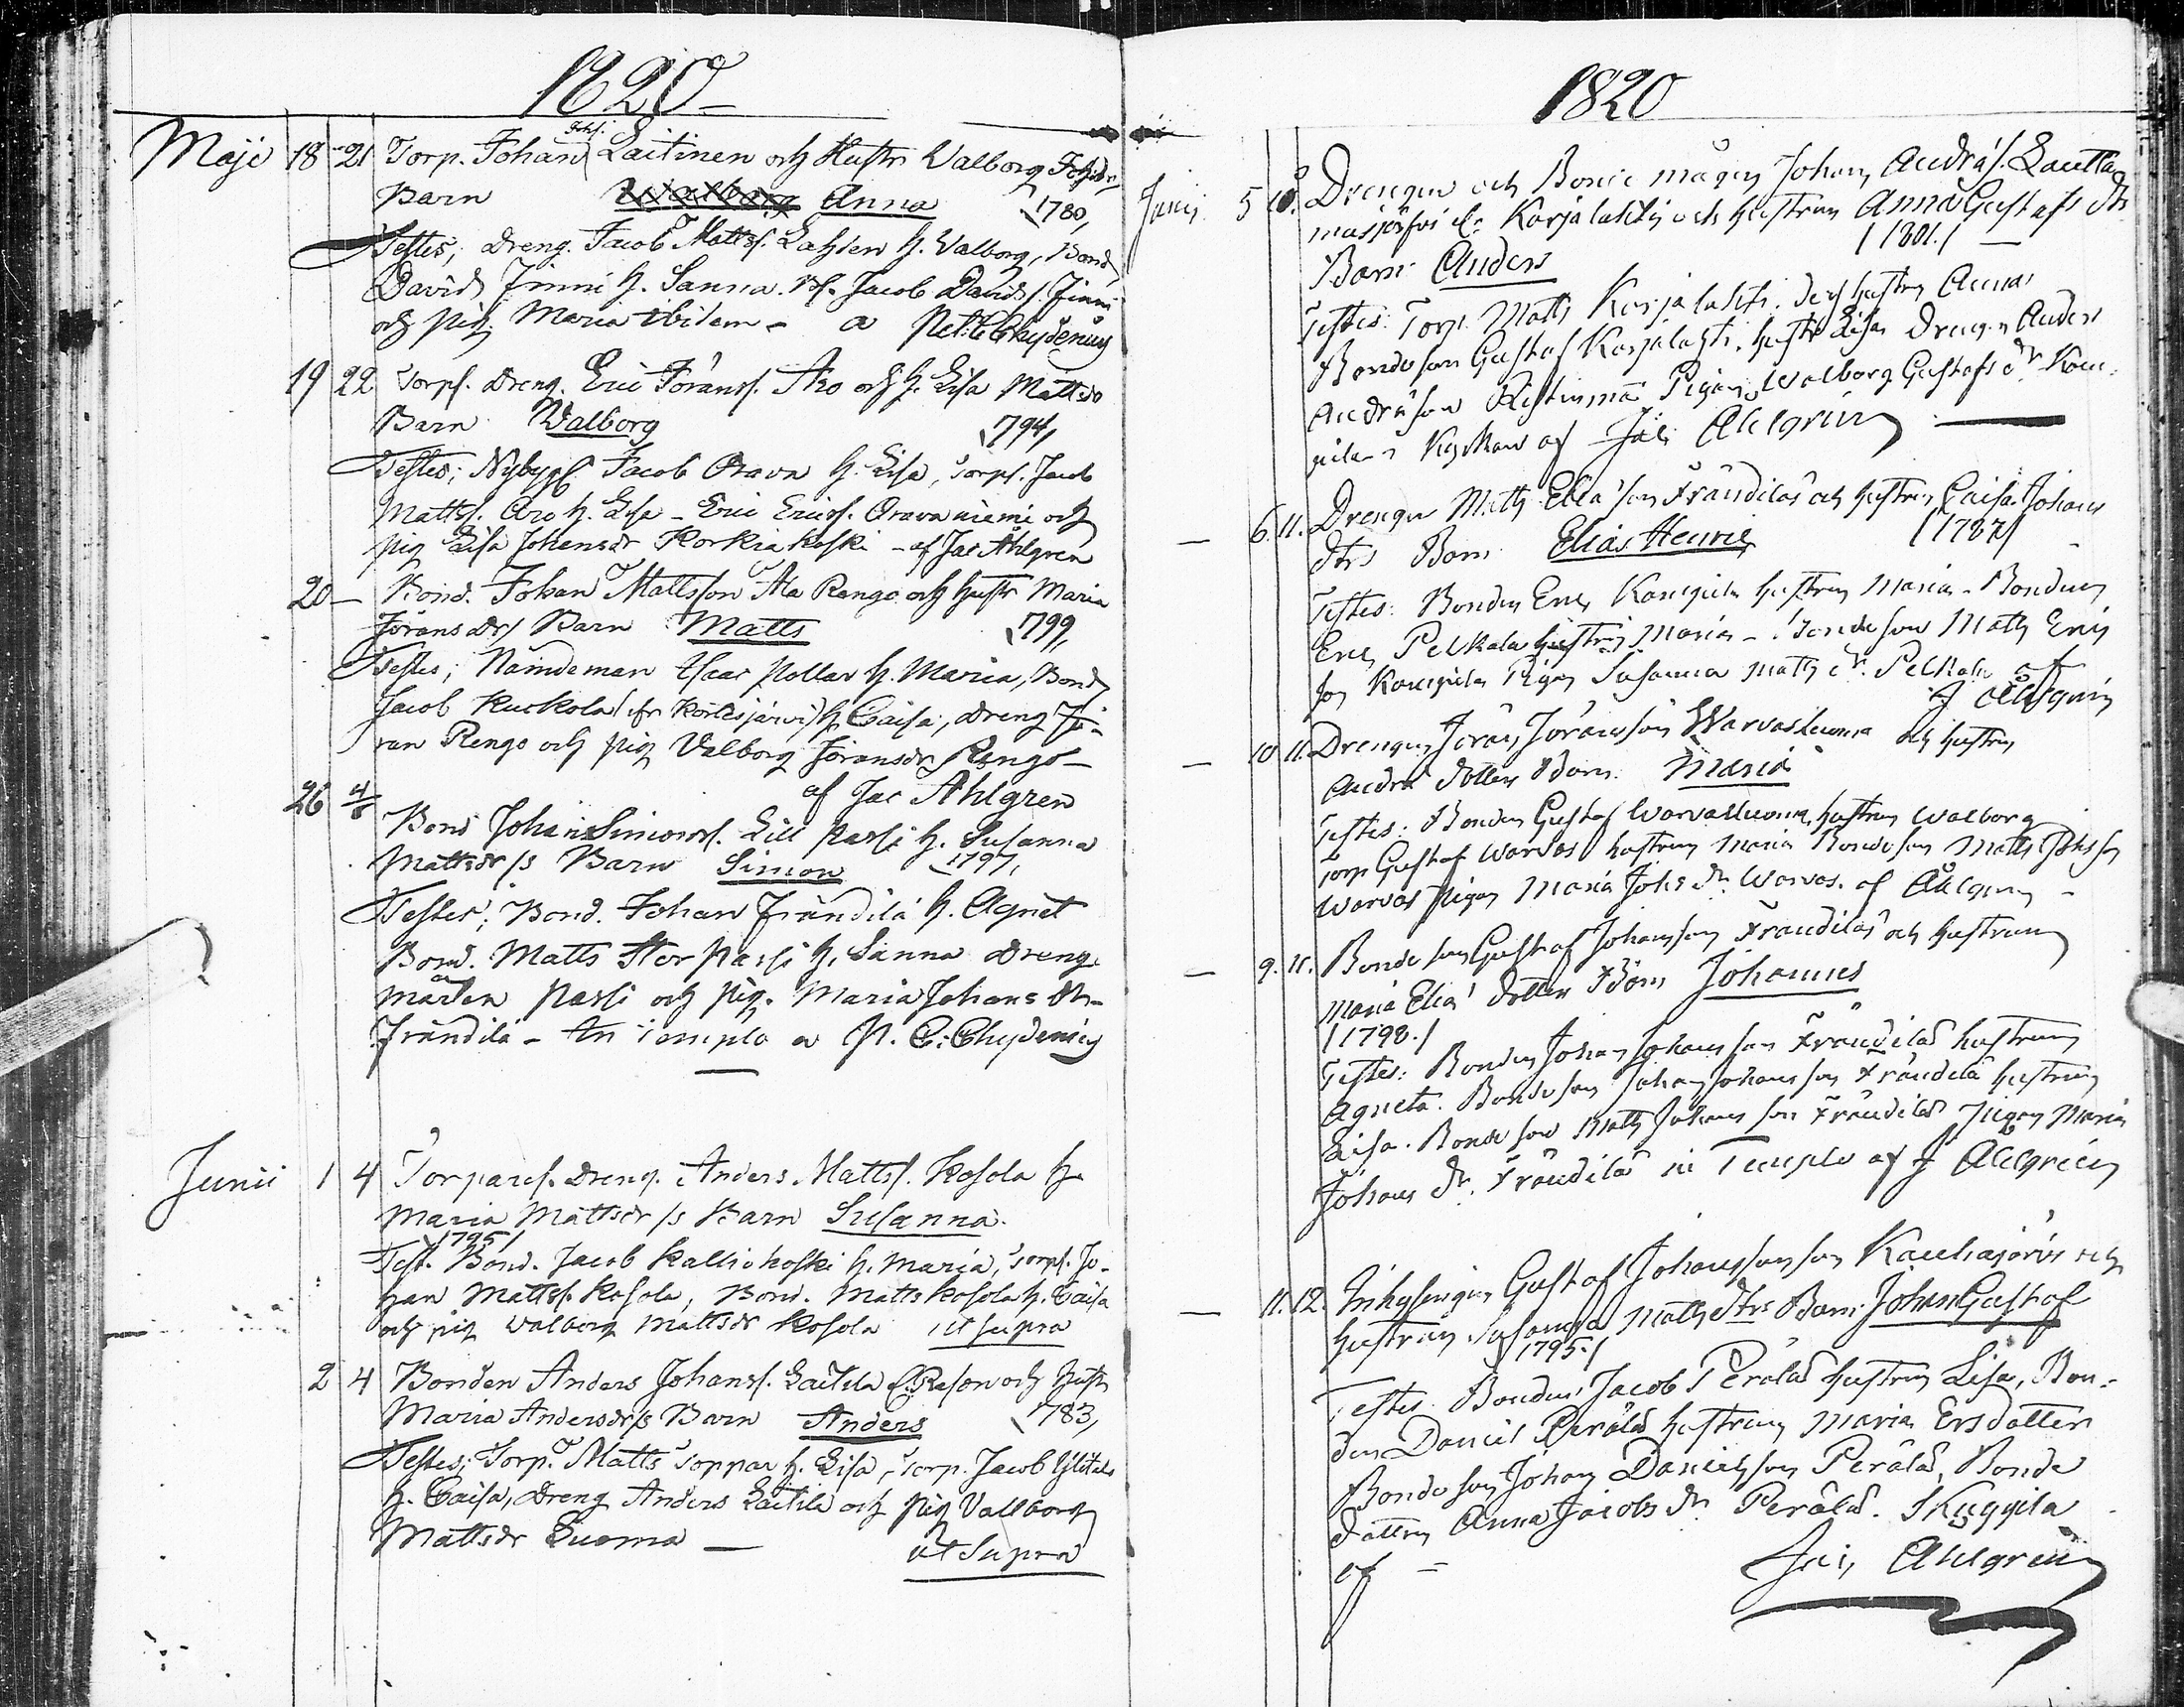 1820
Maji 18 21 Torp. Johan Johs. Laitinen och Hustr. Valborg Johsdr
Barn Walborg Anna 1780,
Testes; Dreng. Jacob Mattss. Lahien h. Valborg, Bond
David Finni h. Sanna. Ds. Jacob Davids. Finni
och pig. Maria ibidem - a Pet. C Chydenius
19 22 Torps. Dreng. Eric Göranss. Aro och h. Lisa Mattsdr
Barn Valborg 1794,
Testes; Nybygg. Jacob Orava h. Lisa, Torps. Jacob
Mattss. Aro h. Lisa - Eric Erics. Oravaniemi och
pig Lisa Johansdr Korkiakoski - af Jac Ahlgren
20 - Bond. Johan Mattsson Ala Rengo och Hustr Maria
Göransdr/ Barn Matts 1799,
Testes; Nämdeman Isaac Pollar h. Maria, Bond
Jacob Kuckola (ifr Kortesjärvi) h. Caisa, Dreng Jö-
ran Rengo och pig Valborg Göransdr Rengo -
af Jac Ahlgren
26 4/6 Bond Johan Simonss. Lill Passi h. Susanna
Mattsdr/s Barn Simon 1797,
Testes; Bond. Johan Frändilä h. Agnet
Bond. Matts Stor Passi h. Sanna Dreng.
Mårten Passi och pig. Maria Johans dr-
Frändilä - In Templo a P. C: Chydenius
Junii 1 4 Torpares. Dreng. Anders Mattss. Kosola h.
Maria Mattsdr/s Barn Susanna.
/1795/
Test. Bond. Jacob Kalliokoski h. Maria, Torps. Jo-
han Mattss. Kosola, Bond. Matts Kosola h. Caisa
och pig Valborg Mattsdr Kosola ut supra
2 4 Bonden Anders Johanss. Laitila l. Reson och Hustr
Maria Andersdr/s Barn Anders 1783,
Testes; Torp. Matts Toppar h. Lisa, Torp. Jacob
h. Caisa, Dreng Anders Laitila och pig Vallborg
Mattsdr Luoma - ut Supra
1820
Junij 5 10. Drengen och Bonde mågen Johan Andräs. Lautta
Karjalahti och hustrun Anna Gustafs dtr
/1801./
Barn Anders
Testes: Torp. Matts Karjalahti. Dess hustru Anna
Bondeson Gustaf Karjalahti. hustr Lisa Drengen Anders
Andräson Ristinmä Pigan Walborg Gustafs dr
af Jac Ahlgren
- 6. 11. Drengen Matts Elia son Frändilä och hustrun Caisa Johans
dtrs Barn Elias Henric /1787/
Testes: Bonden Eric Kangila hustrun Maria - Bonden
Eric Pelkala hustrun Maria - Bondeson Matts Eric
son Kangila Pigan Susanna Matts dr. Pelkala af
J Ahlgren
- 10 11. Drengen Jöran Göransson Warvasluoma och hustrun
Andrä dotter Barn. Maria
Testes: Bonden Gustaf Warvasluoma, hustrun Walborg
Torp Gustaf Warvas hustrun Maria Bondeson Matts Johsson
Warvas Pigan Maria Johs dr. Warvas. af Ahlgren -
- 9. 11. Bonde son Gustaf Johansson Frändilä och hustrun
Maria Elia' dotter Barn Johannes
/1798./
Testes: Bonden Johan Johansson Frändilä hustrun
Agneta. Bondeson Johan Johansson Frändilä hustrun
Lisa. Bonde son Matts Johans son Frändilä Pigan Maria
Johans dr. Frändilä in Templo af J Ahlgren
- 11. 12. Inhysingen Gustaf Johansson Kauhajärvi och
hustrun Susanna Matts dtrs Barn Johan Gustaf
/1795./
Testes. Bonden Jacob Perälä hustrun Lisa, Bon-
den Daniel Perälä hustrun Maria Ersdotter
Bondeson Johan Danielsson Perälä, Bonde
dottren Anna Jacobs dr Perälä.
af = Jac, Ahlgren